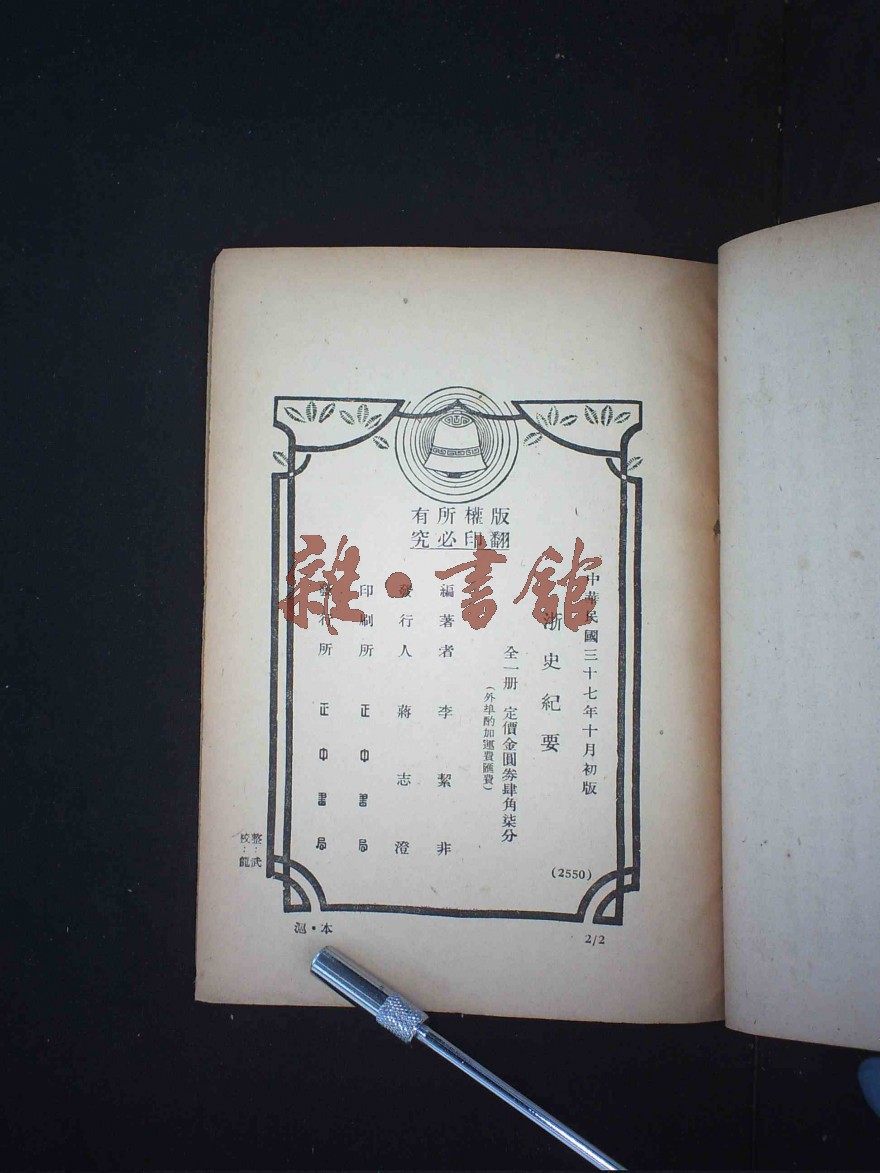 版權所有
翻印必究
中華民國三十七年十月初版
浙史紀要
全一册 定價金圓券肆角柒分
(外埠酌加運費匯費)
編著者 李絜非
發行人 蔣志澄
印刷所 正中書局
發行所 正中書局
(2550)
整：武
校：龍
滬・本
2/2
雜・書館